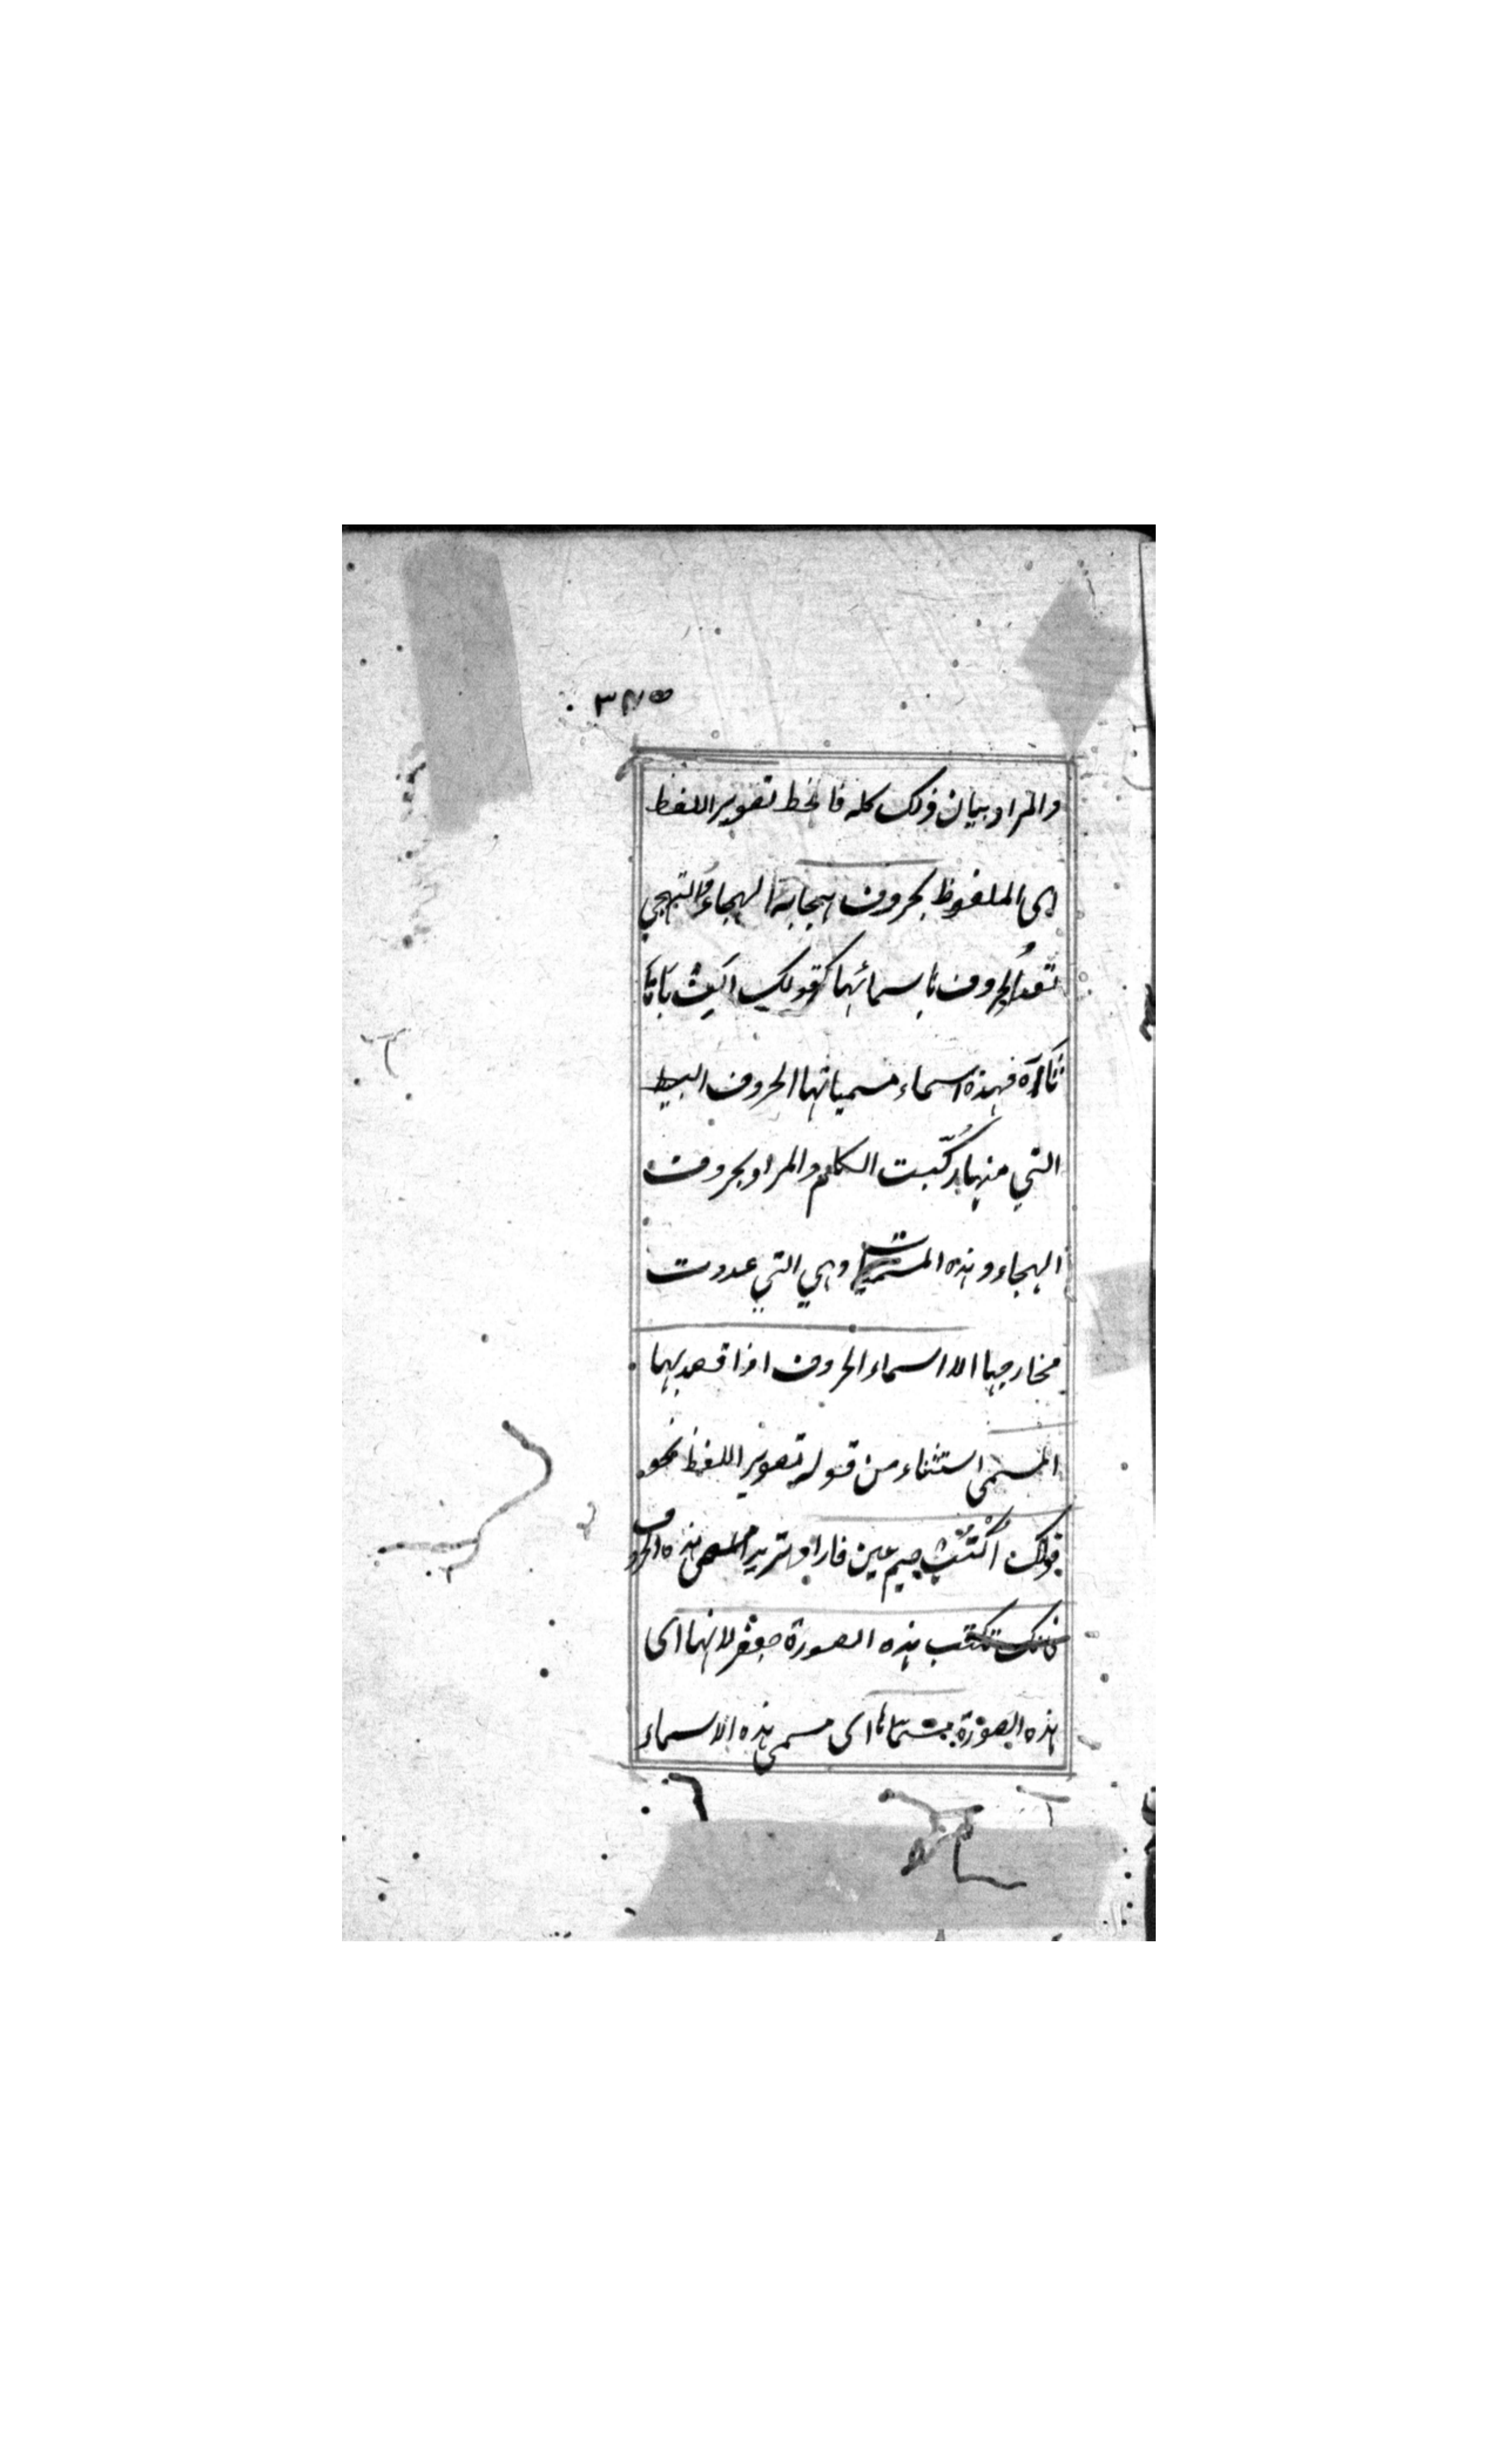 ٣٧٥
والمراد بيان ذلك كله فالخط تصوير اللفظ
اى الملفوظ بحروف هجائه الهجاء والتهجي
تعد الحروف باسمائها كقولك الف با تا
ثا اه فهذه اسماء مسمياتها الحروف البسيط
التي منها ركّبت الكلام والمراد بحروف
الهجاء وهذه المسميات وهي التي عددت
مخارجها الا اسماء الحروف اذا قصد بها
المسمى استثناء من قوله تصوير اللفظ نحو
قولك اُكْتُبْ جيم عين فا را وتريد مسمى هذه الحروف
فانك تكتب هذه الصورة جعفر لانها اى
هذه الصورة مسمّاها اى مسمى هذه الاسماء